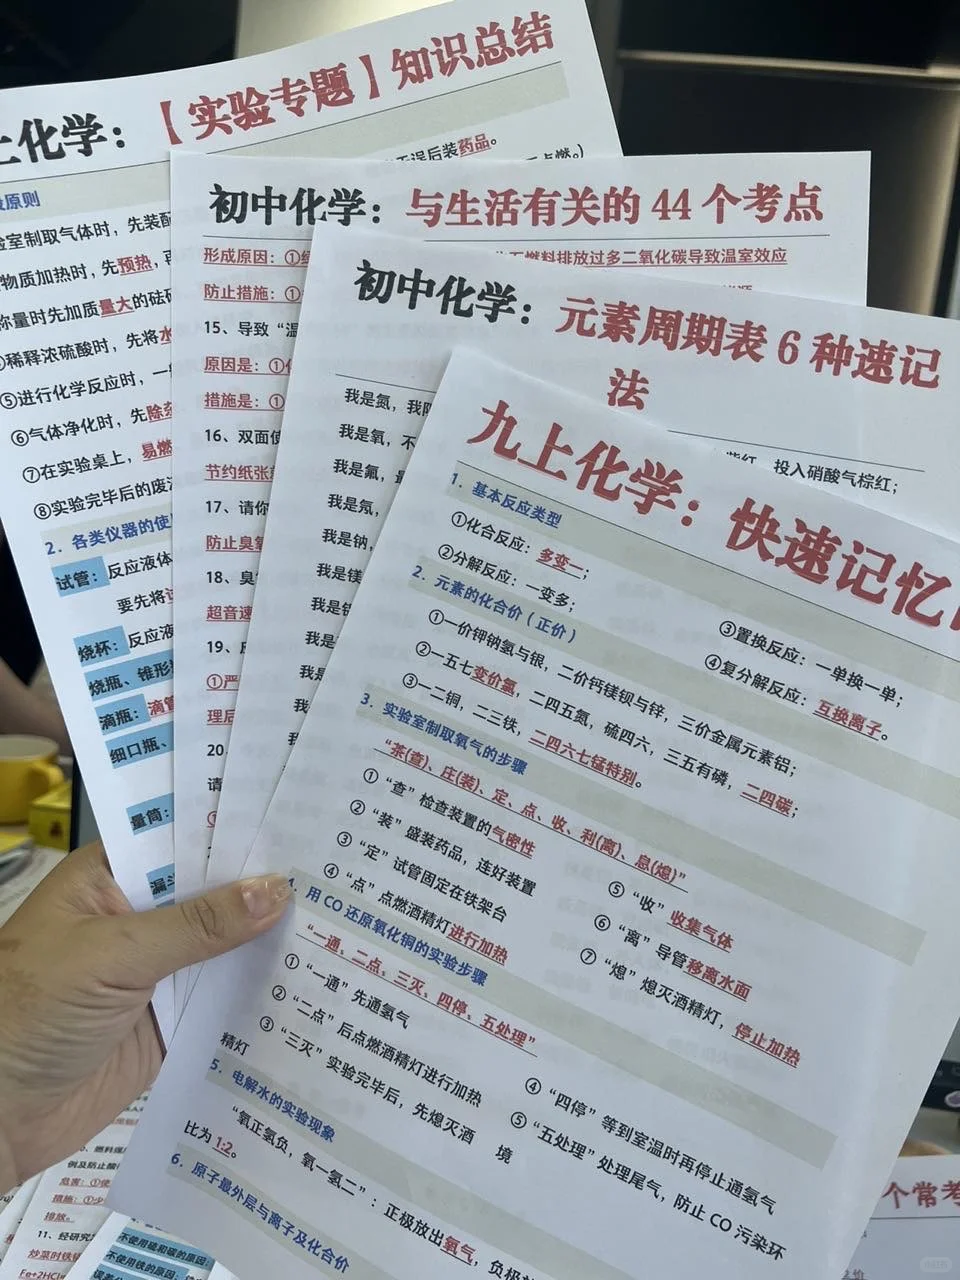 上化学：【实验专题】知识总结
原则
后装药品。
点燃。）
验室制取气体时，先装配
物质加热时，先预热，再
称量时先加质量大的砝码
稀释浓硫酸时，先将水
⑤进行化学反应时，一
⑥气体净化时，先除杂
⑦在实验桌上，易燃
⑧实验完毕后的废
2．各类仪器的使
试管：反应液体
要先将
烧杯：反应液
烧瓶、锥形
滴瓶：滴管
细口瓶、
量筒：
漏斗
初中化学：与生活有关的 44 个考点
形成原因：①
燃料排放过多二氧化碳导致温室效应
防止措施：①
15、导致“温
原因是：①
措施是：①
16、双面使
节约纸张
17、请你
防止臭氧
18、臭
超音速
19、
①严
理后
20
请
初中化学：元素周期表 6 种速记
法
紫红，投入硝酸气棕红；
我是氮，我
我是氧，不
我是氟，最
我是氖，
我是钠，
我是镁
我是铝
我是
我是
我
我
九上化学：快速记忆
1．基本反应类型
①化合反应：多变一；
②分解反应：一变多；
③置换反应：一单换一单；
④复分解反应：互换离子。
2．元素的化合价（正价）
①一价钾钠氢与银，二价钙镁钡与锌，三价金属元素铝；
②一五七变价氯，二四五氮，硫四六，三五有磷，二四碳；
③一二铜，二三铁，二四六七锰特别。
3．实验室制取氧气的步骤
“茶(查)、庄(装)、定、点、收、利(离)、息(熄)”
①“查”检查装置的气密性
②“装”盛装药品，连好装置
③“定”试管固定在铁架台
④“点”点燃酒精灯进行加热
⑤“收”收集气体
⑥“离”导管移离水面
⑦“熄”熄灭酒精灯，停止加热
4．用 CO 还原氧化铜的实验步骤
“一通、二点、三灭、四停、五处理”
①“一通”先通氢气
②“二点”后点燃酒精灯进行加热
③“三灭”实验完毕后，先熄灭酒
精灯
④“四停”等到室温时再停止通氢气
⑤“五处理”处理尾气，防止 CO 污染环
境
5．电解水的实验现象
“氧正氢负，氧一氢二”：正极放出氧气，负极放
比为 1:2。
6．原子最外层与离子及化合价
例及防止酸
危害：①使
措施：①少
排放。
11、经研究
炒菜时铁锅
Fe+2HCl=
不使用硫和碳的原因：
不使用铁的原因：铁
个常考